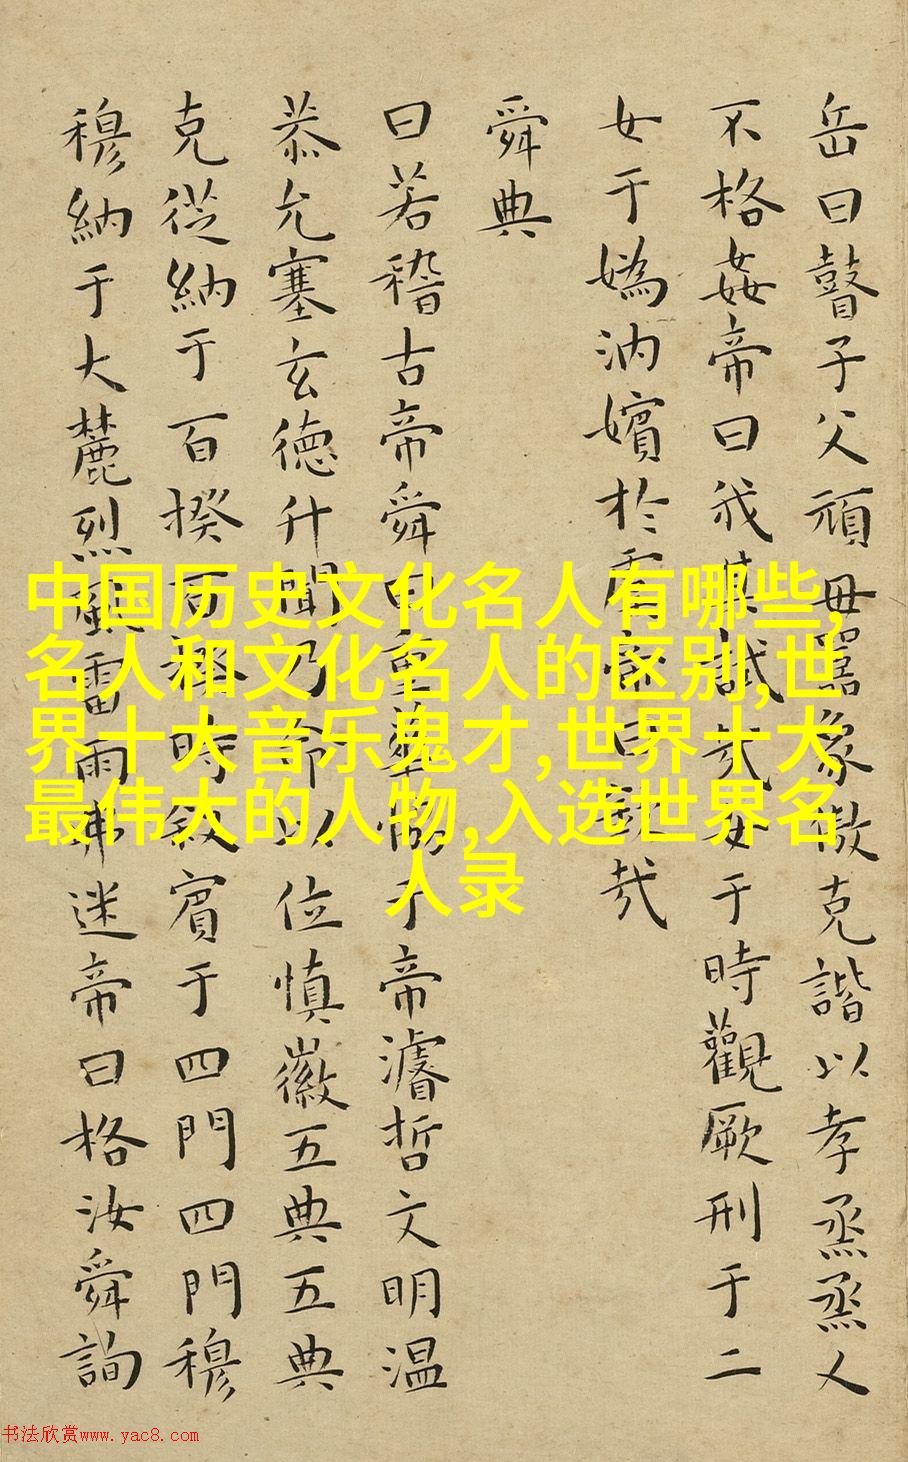 岳曰瞽子父頑毋嚚象傲克諧以孝烝烝乂
不格姦帝曰我其試哉女于時觀厥刑于二
女于媯汭嬪於虞帝曰欽哉
舜典
曰若稽古帝舜曰重華協于帝濬哲文明温
恭允塞玄德升聞乃命以位慎徽五典五典
克從納于百揆百揆時敘賓于四門四門穆
穆納于大麓烈風雷雨弗迷帝曰格汝舜詢
中国历史文化名人有哪些,
名人和文化名人的区别,世
界十大音乐鬼才,世界十大
最伟大的人物,入选世界名
人录
书法欣赏www.yac8.com